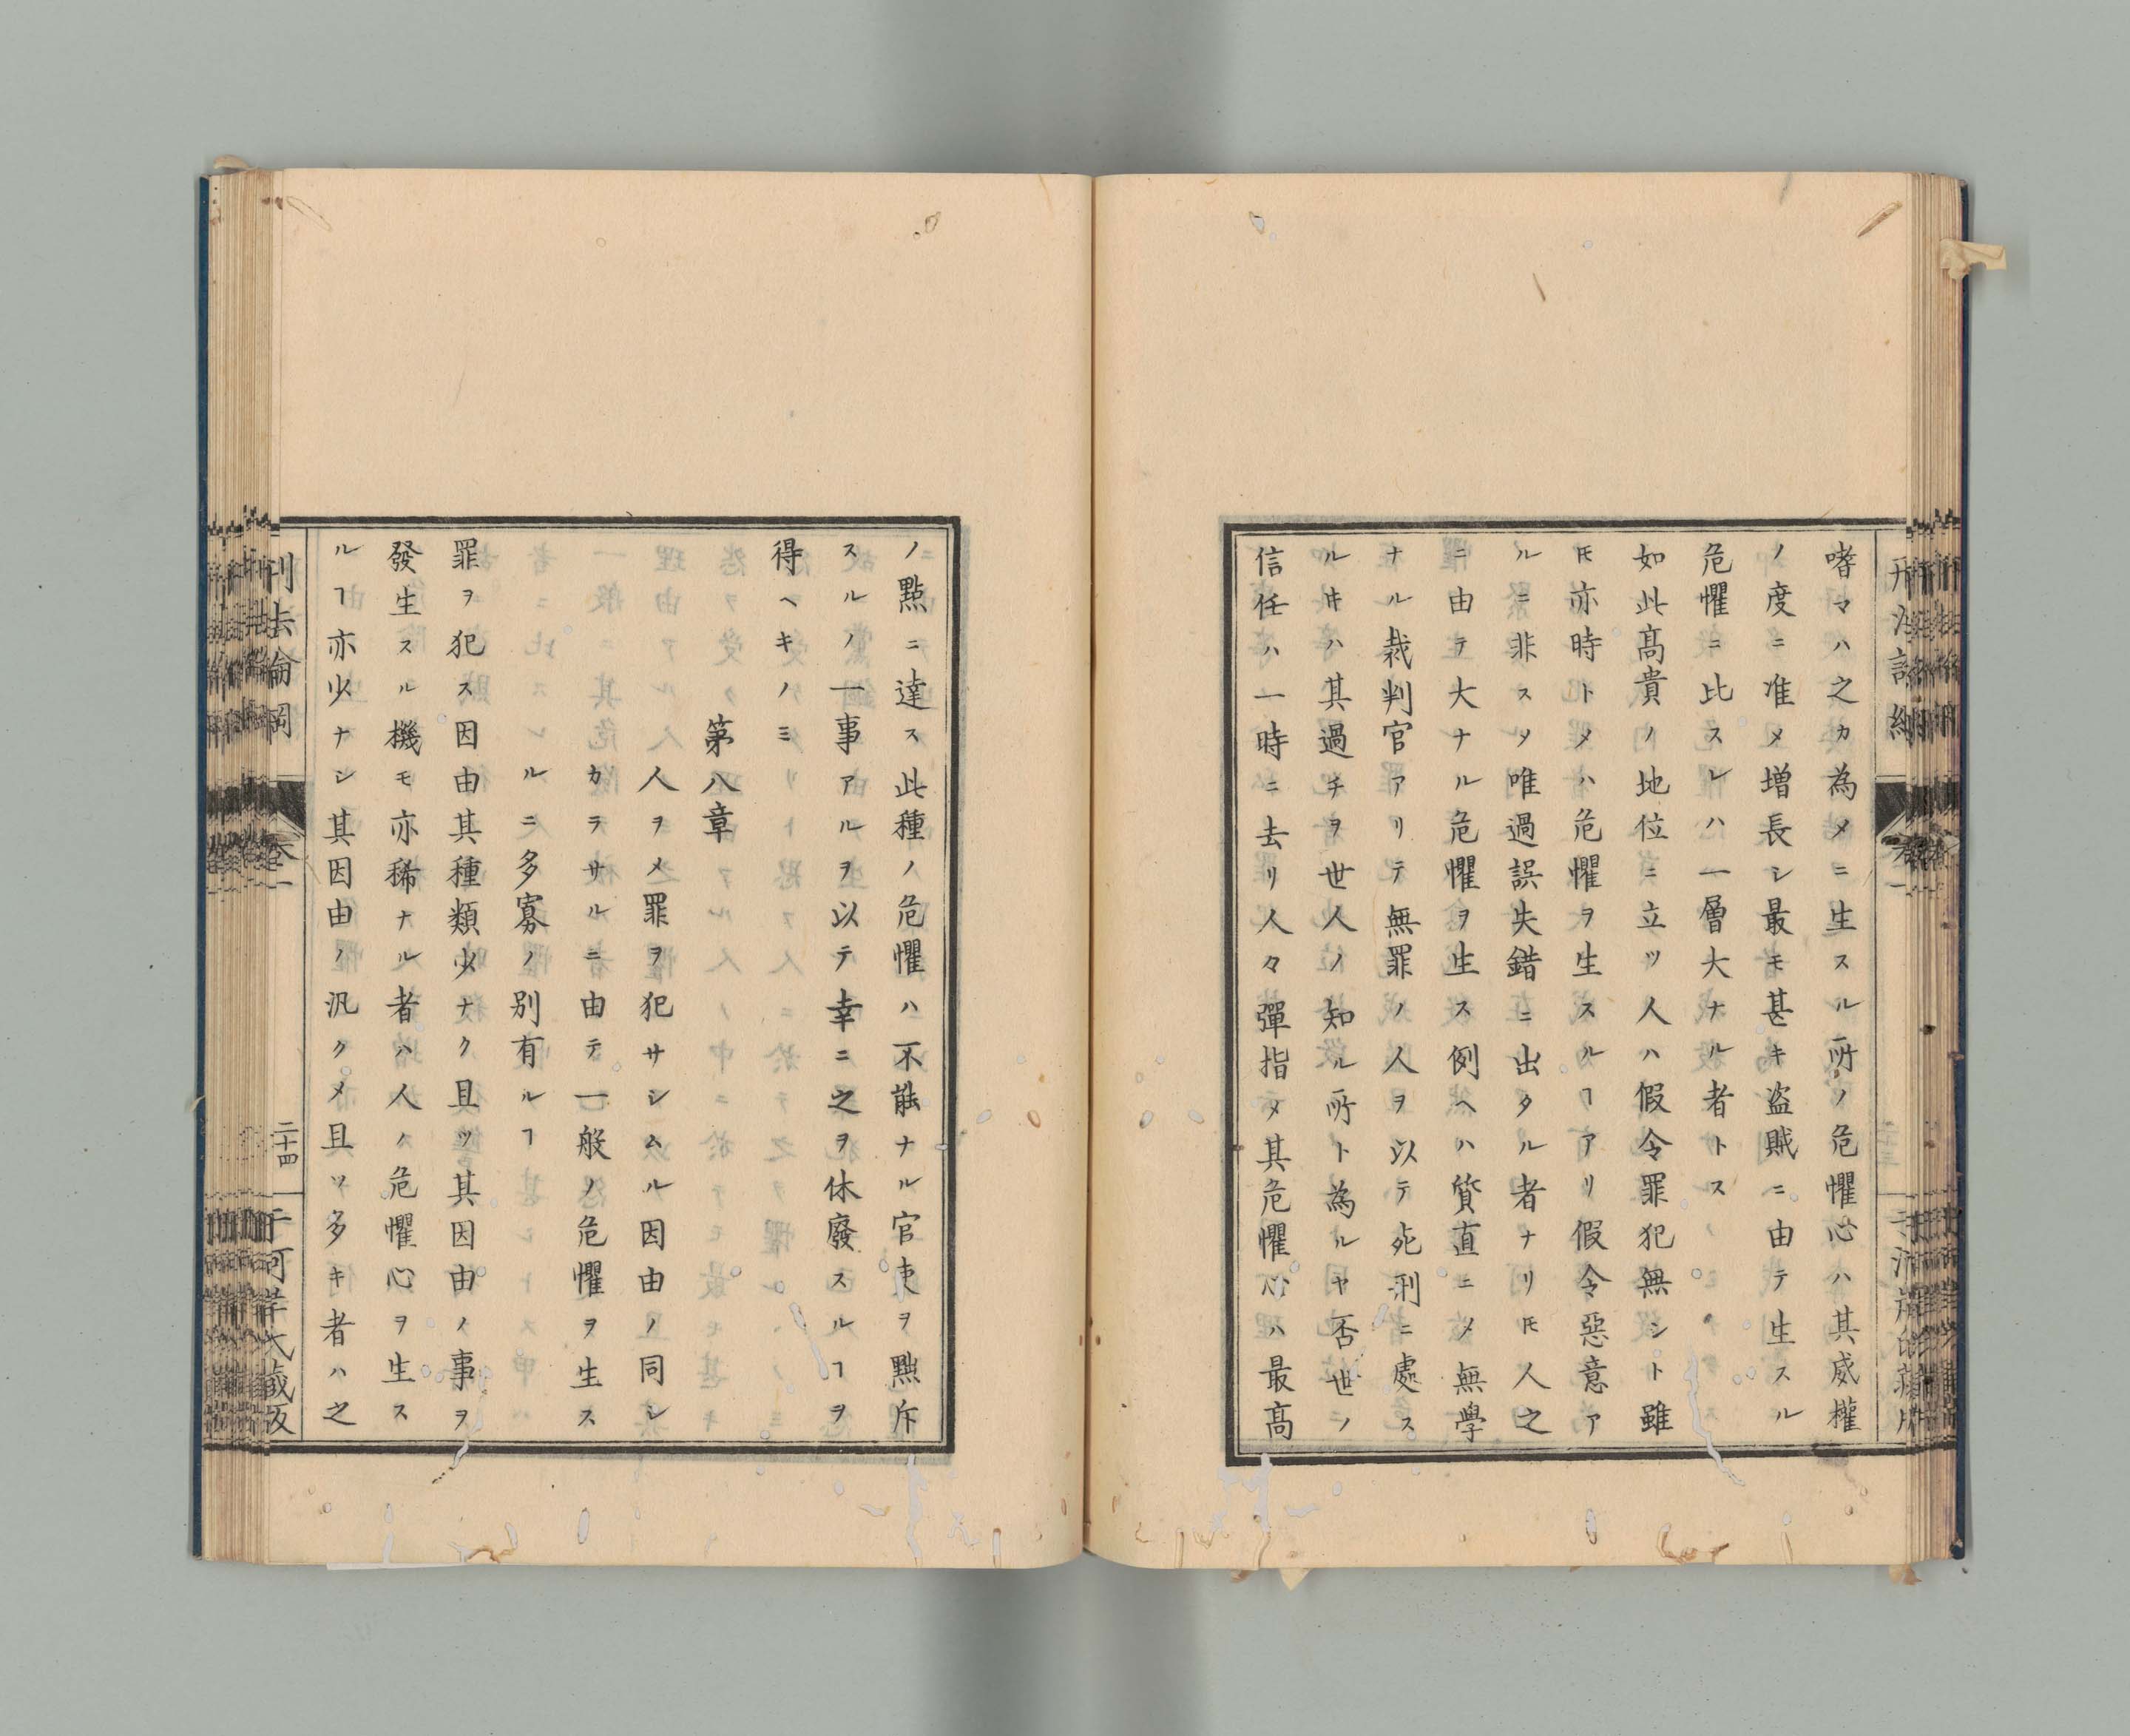 嗜マハ之カ為メニ生スル所ノ危懼心ハ其威權
ノ度ニ准メ増長シ最モ甚キ盗賊ニ由テ生スル
危懼ニ比スレハ一層大ナル者トス
如此髙貴ノ地位ニ立ツ人ハ假令罪犯無シト雖
𪜈亦時トメハ危懼ヲ生スルヿアリ假令惡意ア
ルニ非スメ唯過誤失錯ニ出タル者ナリ𪜈人之
ニ由テ大ナル危懼ヲ生ス例ヘハ質直ニメ無學
ナル裁判官アリテ無罪ノ人ヲ以テ死刑ニ處ス
ル𪜈ハ其過チヲ世人ノ知ル所ト為ルヤ否世ノ
信任ハ一時ニ去リ人々彈指メ其危懼心ハ最髙
ノ點ニ達ス此種ノ危懼ハ不能ナル官吏ヲ黜斥
スルノ一事アルヲ以テ幸ニ之ヲ休廢スルヿヲ
得ヘキノミ
第八章
人ヲメ罪ヲ犯サシムル因由ノ同シ
カラサルニ由テ一般ノ危懼ヲ生ス
ルニ多寡ノ別有ルヿ
罪ヲ犯ス因由其種類少ナク且ツ其因由ノ事ヲ
發生スル機モ亦稀ナル者ハ人ノ危懼心ヲ生ス
ルヿ亦少ナシ其因由ノ汎クメ且ツ多キ者ハ之
卷一
二十四